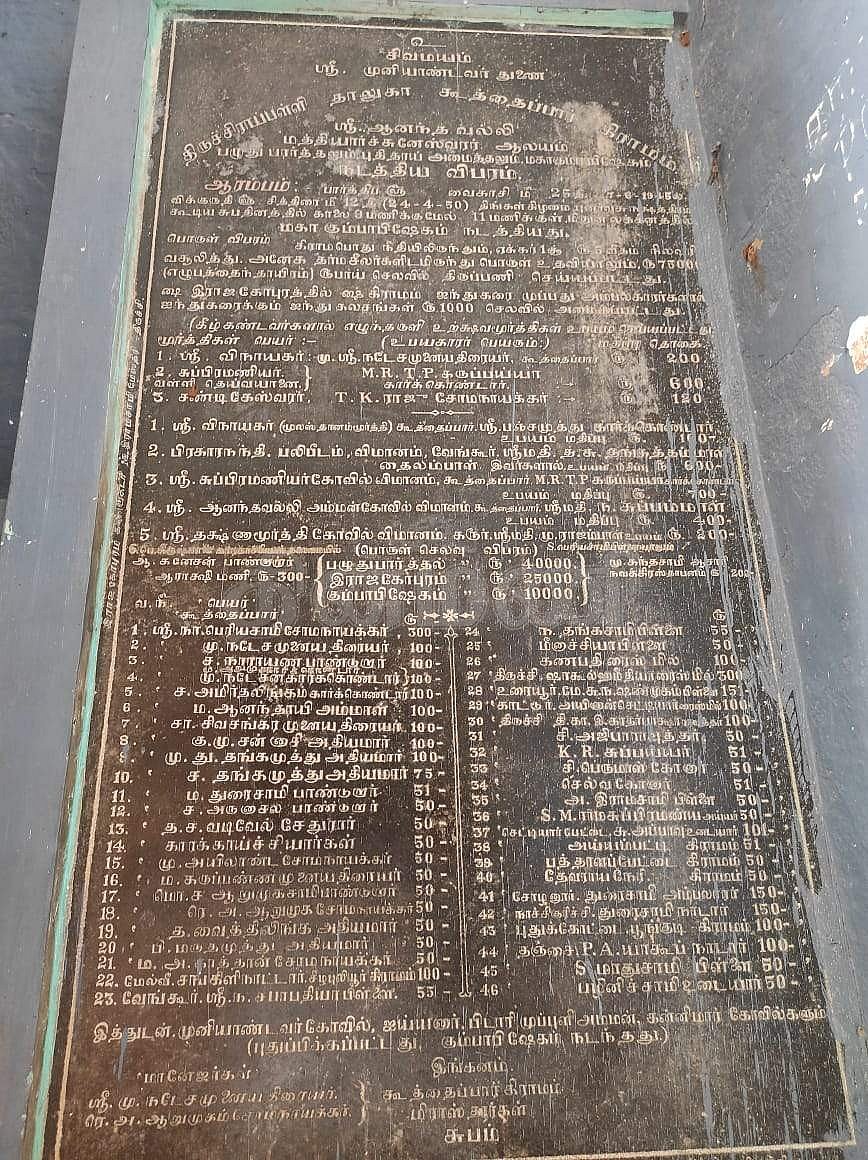 உ
சிவமயம்
ஸ்ரீ. முனியாண்டவர் துணை
திருச்சிராப்பள்ளி தாலுகா கூத்தைப்பார் கிராமம்
ஸ்ரீ ஆனந்த வல்லி
மத்தியார்ச்சுனேஸ்வரர் ஆலயம்
பழுது பார்த்தலும், புதிதாய் அமைத்தலும், மகாகும்பாபிஷேகம்
நடத்திய விபரம்.
ஆரம்பம்: பார்த்திப வைகாசி மீ 25 7-6-1945
விக்குருதி சித்திரை மீ 12 (24-4-50) திங்கள்கிழமை
கூடிய சுபதினத்தில் காலை 9 மணிக்குமேல், 11 மணிக்குள்
மகா கும்பாபிஷேகம் நடத்தியது.
பொருள் விபரம் கிராமபொது நிதியிலிருந்தும், ஏக்கர் 1க்கு
வசூலித்து, அனேக தர்மசீலர்களிடமிருந்து பொருள் உதவி ரூ 75000
(எழுபத்தைந்தாயிரம்) ரூபாய் செலவில் திருப்பணி செய்யப்பட்டது.
ஷை இராஜகோபுரத்தில் ஷை கிராமம் ஐந்துகரை முப்பது அம்பலகாரர்களால்
ஐந்துகரைக்கும் ஐந்து கலசங்கள் ரூ 1000 செலவில்
(கீழ்கண்டவர்களால் எழுந்தருளி உற்சவமூர்த்திகள் உபயம் செய்யப்பட்டது
மூர்த்திகள் பெயர் :- (உபயகாரர் பெயரும்:) மதிப்பு தொகை.
1. ஸ்ரீ. விநாயகர்: மு. ஸ்ரீ. நடேசமுனையதிரையர், கூத்தைப்பார் ரூ 200
2. சுப்பிரமணியர். வள்ளி தெய்வயானை, } M.R.T.P கருப்பய்யா கார்க்கொண்டார். :- ரூ 600
3. சண்டிகேஸ்வரர், T.K. ராஜ சோமநாயக்கர் :- ரூ 120
1. ஸ்ரீ. விநாயகர் (மூலஸ்தானம்மூர்த்தி) கூத்தைப்பார். ஸ்ரீ. பிச்சமுத்து கார்க்கொண்டார்
உபயம் மதிப்பு ரூ. 100-
2. பிரகாரநந்தி, பலிபீடம், விமானம், வேங்கூர், ஸ்ரீமதி. த. சு. தங்கத்தம்மாள்
தைலம்பாள். இவர்களால் உபயம் மதிப்பு ரூ 600-
3. ஸ்ரீ. சுப்பிரமணியர்கோவில் விமானம், கூத்தைப்பார் M.R.T.P கருப்பய்யா கார்க்கொண்டார்
உபயம் மதிப்பு ரூ. 700-
4. ஸ்ரீ. ஆனந்தவல்லி அம்மன்கோவில் விமானம், கூத்தைப்பார் ஸ்ரீமதி, ந. சுப்பம்மாள்
உபயம் மதிப்பு ரூ. 400-
5. ஸ்ரீ. தக்ஷணாமூர்த்தி கோவில் விமானம். கரூர். ஸ்ரீமதி. மு. ராஜம்மாள் உபயம் ரூ. 200-
(பொருள் செலவு விபரம்)
ஆ. கனேசன் பாண்டூர் ஆராக்ஷிமணி. ரூ-300-
பழுதுபார்த்தல் " ரூ 40000
இராஜகோபுரம் " ரூ 25000
கும்பாபிஷேகம் " ரூ 10000
மு. கந்தசாமி ஆசாரி நவக்கிரஸ்தாபனம் ரூ 200-
வ. நீ. பெயர் ரூ
கூத்தைப்பார்
1 ஸ்ரீ. நா. பெரியசாமி சோமநாயக்கர் 300-
2 மு. நடேச முனைய திரையர் 100-
3 ச. நாராயண பாண்டூர் 100-
4. மு. நடேசன் கார்க்கொண்டார் 100-
5 ச. அமிர்தலிங்கம் கார்க்கொண்டார் 100-
6 ம. ஆனந்தாயி அம்மாள் 100-
7 சா. சிவசங்கர முனைய திரையர் 100-
8. கு. மு. சன்னாசி அதியமார் 100-
9 மு. து. தங்கமுத்து அதியமார் 100-
10. ச. தங்கமுத்து அதியமார் 75-
11. ம. துரைசாமி பாண்டூர் 51-
12. ச. அருணாசல பாண்டூர் 50-
13. த. ச. வடிவேல் சேதுரார் 50-
14. காரக்காய்ச்சியார்கள் 50-
15. மு. அயிலாண்ட சோமநாயக்கர் 50-
16. ம. கருப்பண்ண முனைய திரையர் 50-
17. பொ. ச ஆறுமுகசாமி பாண்டூர் 50-
18. ரெ. அ. ஆறுமுக சோமநாயக்கர் 50-
19. த. வைத்திலிங்க அதியமார் 50-
20. பி. மருதமுத்து அதியமார் 50-
21. ம. அ. சாத்தான் சோமநாயக்கர் 50-
22. மேல்வீ. சாங்கிளி நாட்டார். கிராமம் 100-
23. வேங்கூர். ஸ்ரீ. ந. சபாபதியாபிள்ளை. 55-
ரூ
24 ந. தங்கசாமி பிள்ளை 55-
25 மீனாச்சியா பிள்ளை 50-
26 கணபதி ரைஸ் மில் 100-
27 திருச்சி. ஷாகுல்ஹமீதியா ரைஸ்மில் 300-
28 உறையூர். மே. சு. ந. ஷண்முகம்பிள்ளை 151-
29 காட்டூர். 100-
30 திருச்சி 100-
31 சி. அஜீபாராவுத்தர் 50-
32 K. R. சுப்பய்யர் 51-
33 சி. பெருமாள் கோனார் 50-
34 செல்வ கோனார் 51-
35 அ. இராமசாமி பிள்ளை 50-
36 S. M. ராமசுப்பிரமண்ய அய்யர் 50-
37 செட்டியார்பேட்டை. சு. அப்பாவு உடையார் 101-
38 அய்யம்பட்டி கிராமம் 51-
39 பத்தாளப்பேட்டை கிராமம் 50-
40 தேவராயநேரி. கிராமம் 50-
41 சோழனூர். துரைசாமி அம்பலாரர் 150-
42 நாச்சிகுரிச்சி. துரைசாமி நாடார் 150-
43 புதுக்கோட்டை பூங்குடி கிராமம் 100-
44 தஞ்சை. P. A. யாகூப் நாடார் 100-
45 S மாதுசாமி பிள்ளை 50-
46 பழனிச்சாமி உடையார் 50-
இத்துடன். முனியாண்டவர்கோவில், ஐய்யனார். பிடாரி முப்புளி அம்மன், கன்னிமார் கோவில்களும்
(புதுப்பிக்கப்பட்டது கும்பாபிஷேகம் நடந்தது.)
மானேஜர்கள் இங்கனம்.
ஸ்ரீ. மு. நடேசமுனையதிரையர். } கூத்தைப்பார் கிராமம்
ரெ. அ. ஆறுமுகம் சோமநாயக்கர். மிராஸ்தார்கள்
சுபம்